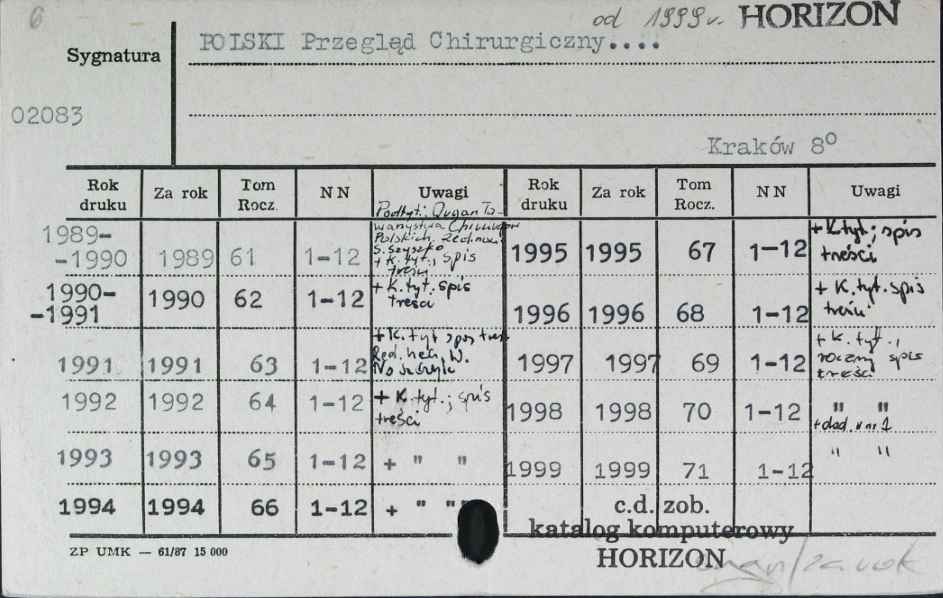 6
od 1999 r. HORIZON
POLSKI Przegląd Chirurgiczny....
Sygnatura
02083
Kraków 8°
Rok druku Za rok Tom Rocz. NN Uwagi Rok druku Za rok Tom Rocz. NN Uwagi
1989--1990 1989 61 1-12 Podtyt.: Organ To-
warzystwa Chirurgów
Polskich. Red. nacz.
S. Szyszko
+ K. tyt., spis
treści
1990--1991 1990 62 1-12 + k. tyt. spis
treści
1991 1991 63 1-12 + k. tyt spis treści
Red. nacz. W.
1992 1992 64 1-12 + K. tyt.; spis
treści
1993 1993 65 1-12 + " "
1994 1994 66 1-12 + " "
1995 1995 67 1-12 + K. tyt; spis
treści
1996 1996 68 1-12 + K. tyt. spis
treści
1997 1997 69 1-12 + k. tyt.,
roczny spis
treści
1998 1998 70 1-12 " "
+ dod. v nr 1
1999 1999 71 1-12 " "
c.d. zob.
katalog komputerowy
HORIZON
ZP UMK — 61/87 15 000